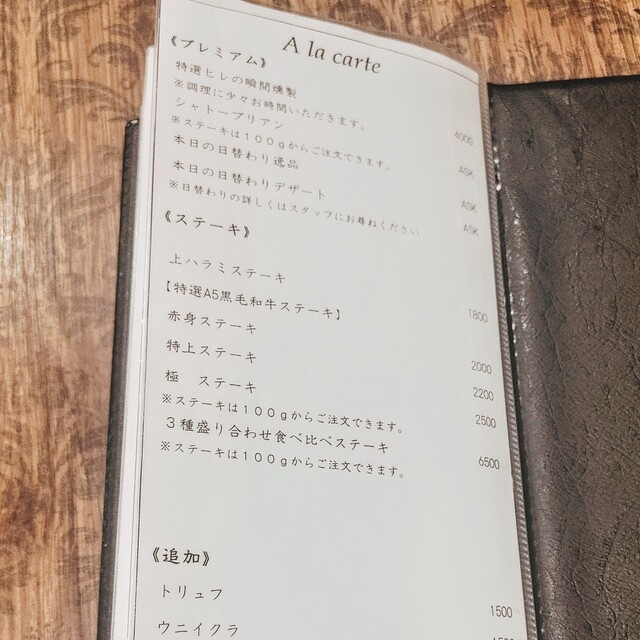 A la carte
《プレミアム》
特選ヒレの瞬間燻製 4000
※調理に少々お時間いただきます。
シャトーブリアン ASK
※ステーキは100gからご注文できます。
本日の日替わり逸品 ASK
本日の日替わりデザート ASK
※日替わりの詳しくはスタッフにお尋ねください
《ステーキ》
上ハラミステーキ 1800
【特選A5黒毛和牛ステーキ】
赤身ステーキ 2000
特上ステーキ 2200
極 ステーキ 2500
※ステーキは100gからご注文できます。
3種盛り合わせ食べ比べステーキ 6500
※ステーキは100gからご注文できます。
《追加》
トリュフ 1500
ウニイクラ